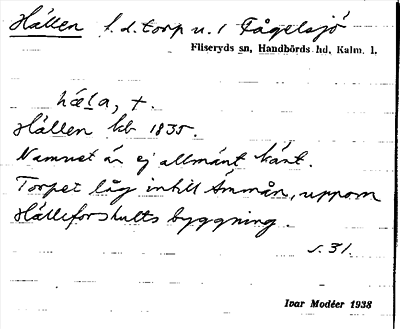 Hällen f.d. torp u. 1 Fågelsjö
Fliseryds sn, Handbörds hd, Kalm. l.
hæla, +.
Hällen kb 1835.
Namnet är ej allmänt känt.
Torpet låg intill Ammån, uppom
Hälleforshults byggning.
s. 31.
Ivar Modéer 1938